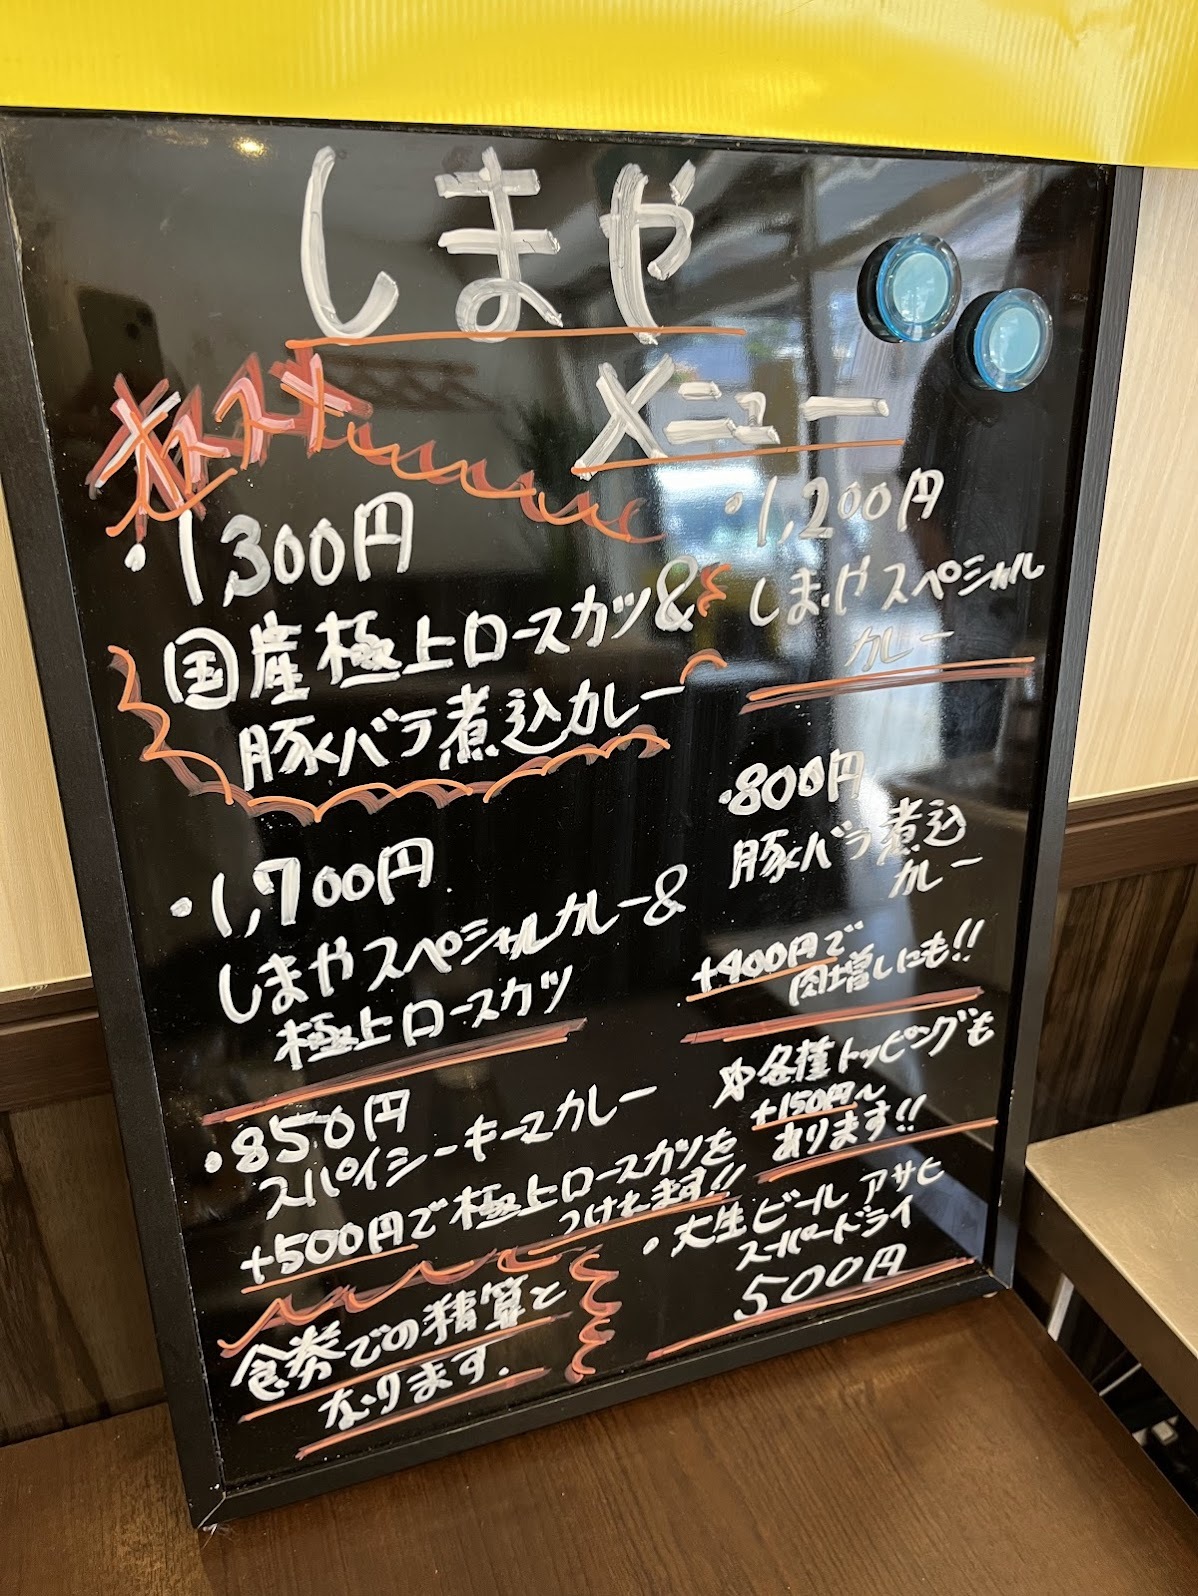 しまや
メニュー
オススメ
・1,300円
国産極上ロースカツ&
豚バラ煮込カレー
・1,700円
しまやスペシャルカレー&
極上ロースカツ
・850円
スパイシーキーマカレー
+500円で極上ロースカツを
つけれます!!
食券での精算と
なります.
・1,200円
しまやスペシャル
カレー
・800円
豚バラ煮込
カレー
+400円で
肉増しにも!!
各種トッピングも
+150円〜
あります!!
・大生ビール アサヒ
スーパードライ
500円